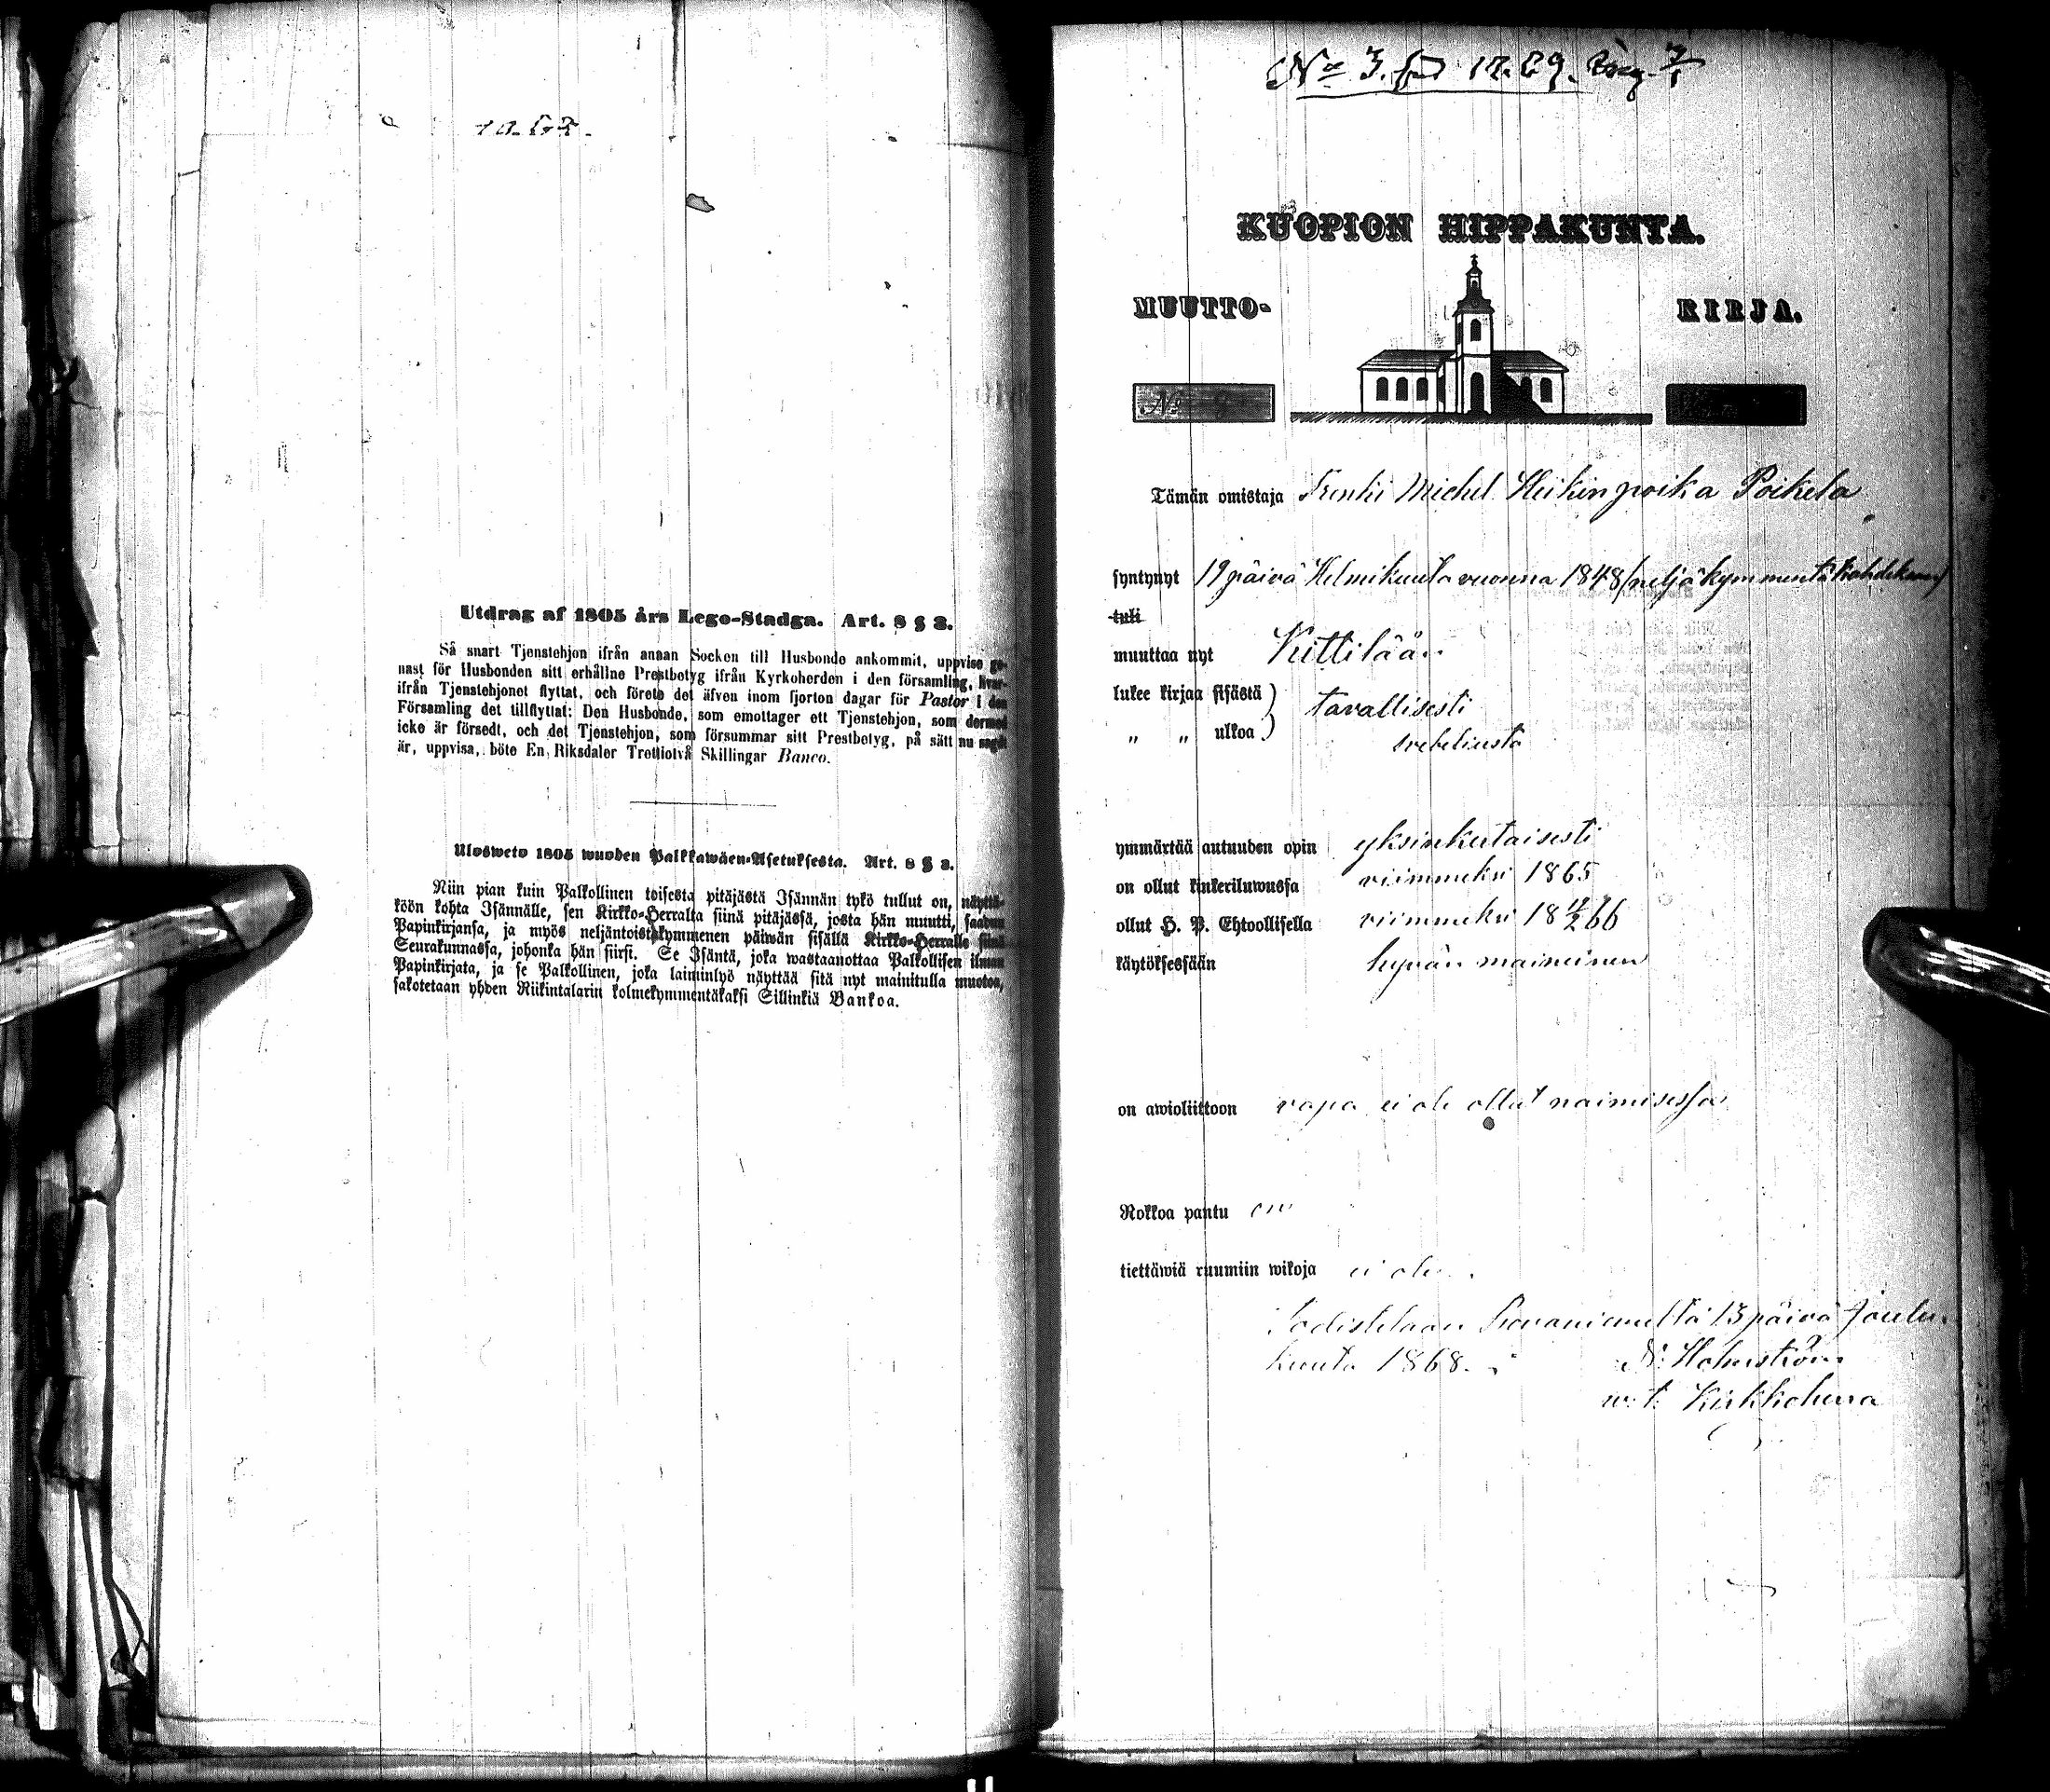 Utdrag af 1805 års Lego-Stadga. Art. 8 § 3.
Så snart Tjenstehjon ifrån annan Socken till Husbonde ankommit, uppvise ge-
nast för Husbonden sitt erhållne Prestbetyg ifrån Kyrkoherden i den församling, hvar-
ifrån Tjenstehjonet flyttat, och förete det äfven inom fjorton dagar för Pastor i den
Församling det tillflyttat: Den Husbonde, som emottager ett Tjenstehjon, som dermed
icke är försedt, och det Tjenstehjon, som försummar sitt Prestbetyg, på sätt nu sagdt
är, uppvisa, böte En Riksdaler Trettiotvå Skillingar Banco.
Ulosweto 1805 wuoden Palkkawäen-Asetuksesta. Art. 8 § 3.
Niin pian kuin Palkollinen toisesta pitäjästä Isännän tykö tullut on, näyttä-
köön kohta Isännälle, sen Kirkko-Herralta siinä pitäjässä, josta hän muutti, saadun
Papinkirjansa, ja myös neljäntoistakymmenen päiwän sisällä Kirkko-Herralle siinä
Seurakunnassa, johonka hän siirsi. Se Isäntä, joka wastaanottaa Palkollisen ilman
Papinkirjata, ja se Palkollinen, joka laiminlyö näyttää sitä nyt mainitulla muotoa,
sakotetaan yhden Riikintalarin kolmekymmentäkaksi Sillinkiä Bankoa.
No 3.
KUOPION HIPPAKUNTA.
MUUTTO- KIRJA.
No 8
Tämän omistaja Trenki Michel Heikinpoika Poikela
syntynyt 19 päivä Helmikuuta vuonna 1848 (neljäkymmentäkahdeksan)
tuli
muuttaa nyt Kittilään
lukee kirjaa sisästä ) tavallisesti
" " ulkoa )
ymmärtää autuuden opin yksinkertaisesti
on ollut kinkeriluwussa viimmeksi 1865
ollut H. P. Ehtoollisella viimmeksi 18 4/2 66
käytöksessään hyvän maineinen
on awioliittoon vapa ei ole ollut naimisessa
Rokkoa pantu on
tiettäwiä ruumiin wikoja ei ole.
Todistetaan Rovaniemellä 13 päivä Joulu-
kuuta 1868. N. Holmström
w. t. Kirkkoherra